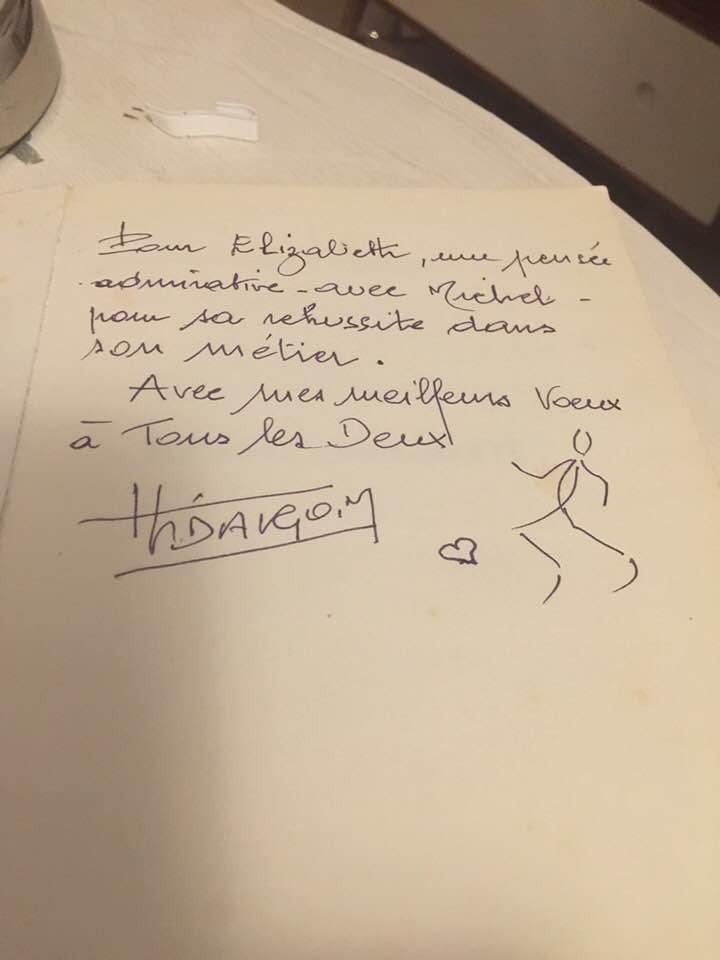 Pour Elizabeth, une pensée
admirative - avec Michel -
pour sa rehussite dans
son métier.
Avec mes meilleurs Voeux
à Tous les Deux